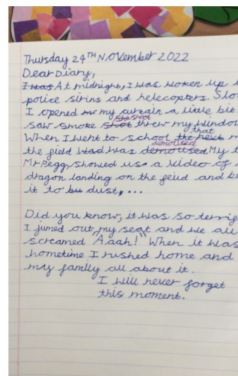 Thursday 24TH NOVember 2022
Dear Diary,
At midnight, I was woken up
police sirins and helecopters. Slo
I opened my curtain a little bit
saw smoke threw my window
When I went to school that
the field was demolised My
Mr Pegg, showed us a video of
dragon landing on the feild and b
it to be dust,...
Did you know, it was so terrig
I jumed out my seat and we all
screamed "Aaah!" When it was
hometime I rushed home and
my family all about it.
I will never forget
this moment.